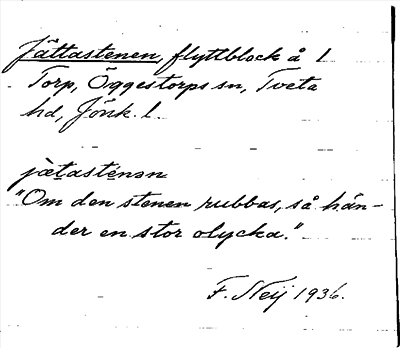 Jättastenen, flyttblock å 1
Torp, Öggestorps sn, Tveta
hd, Jönk. l.
jätasténən
"Om den stenen rubbas, så hän-
der en stor olycka."
F. Neij 1936.